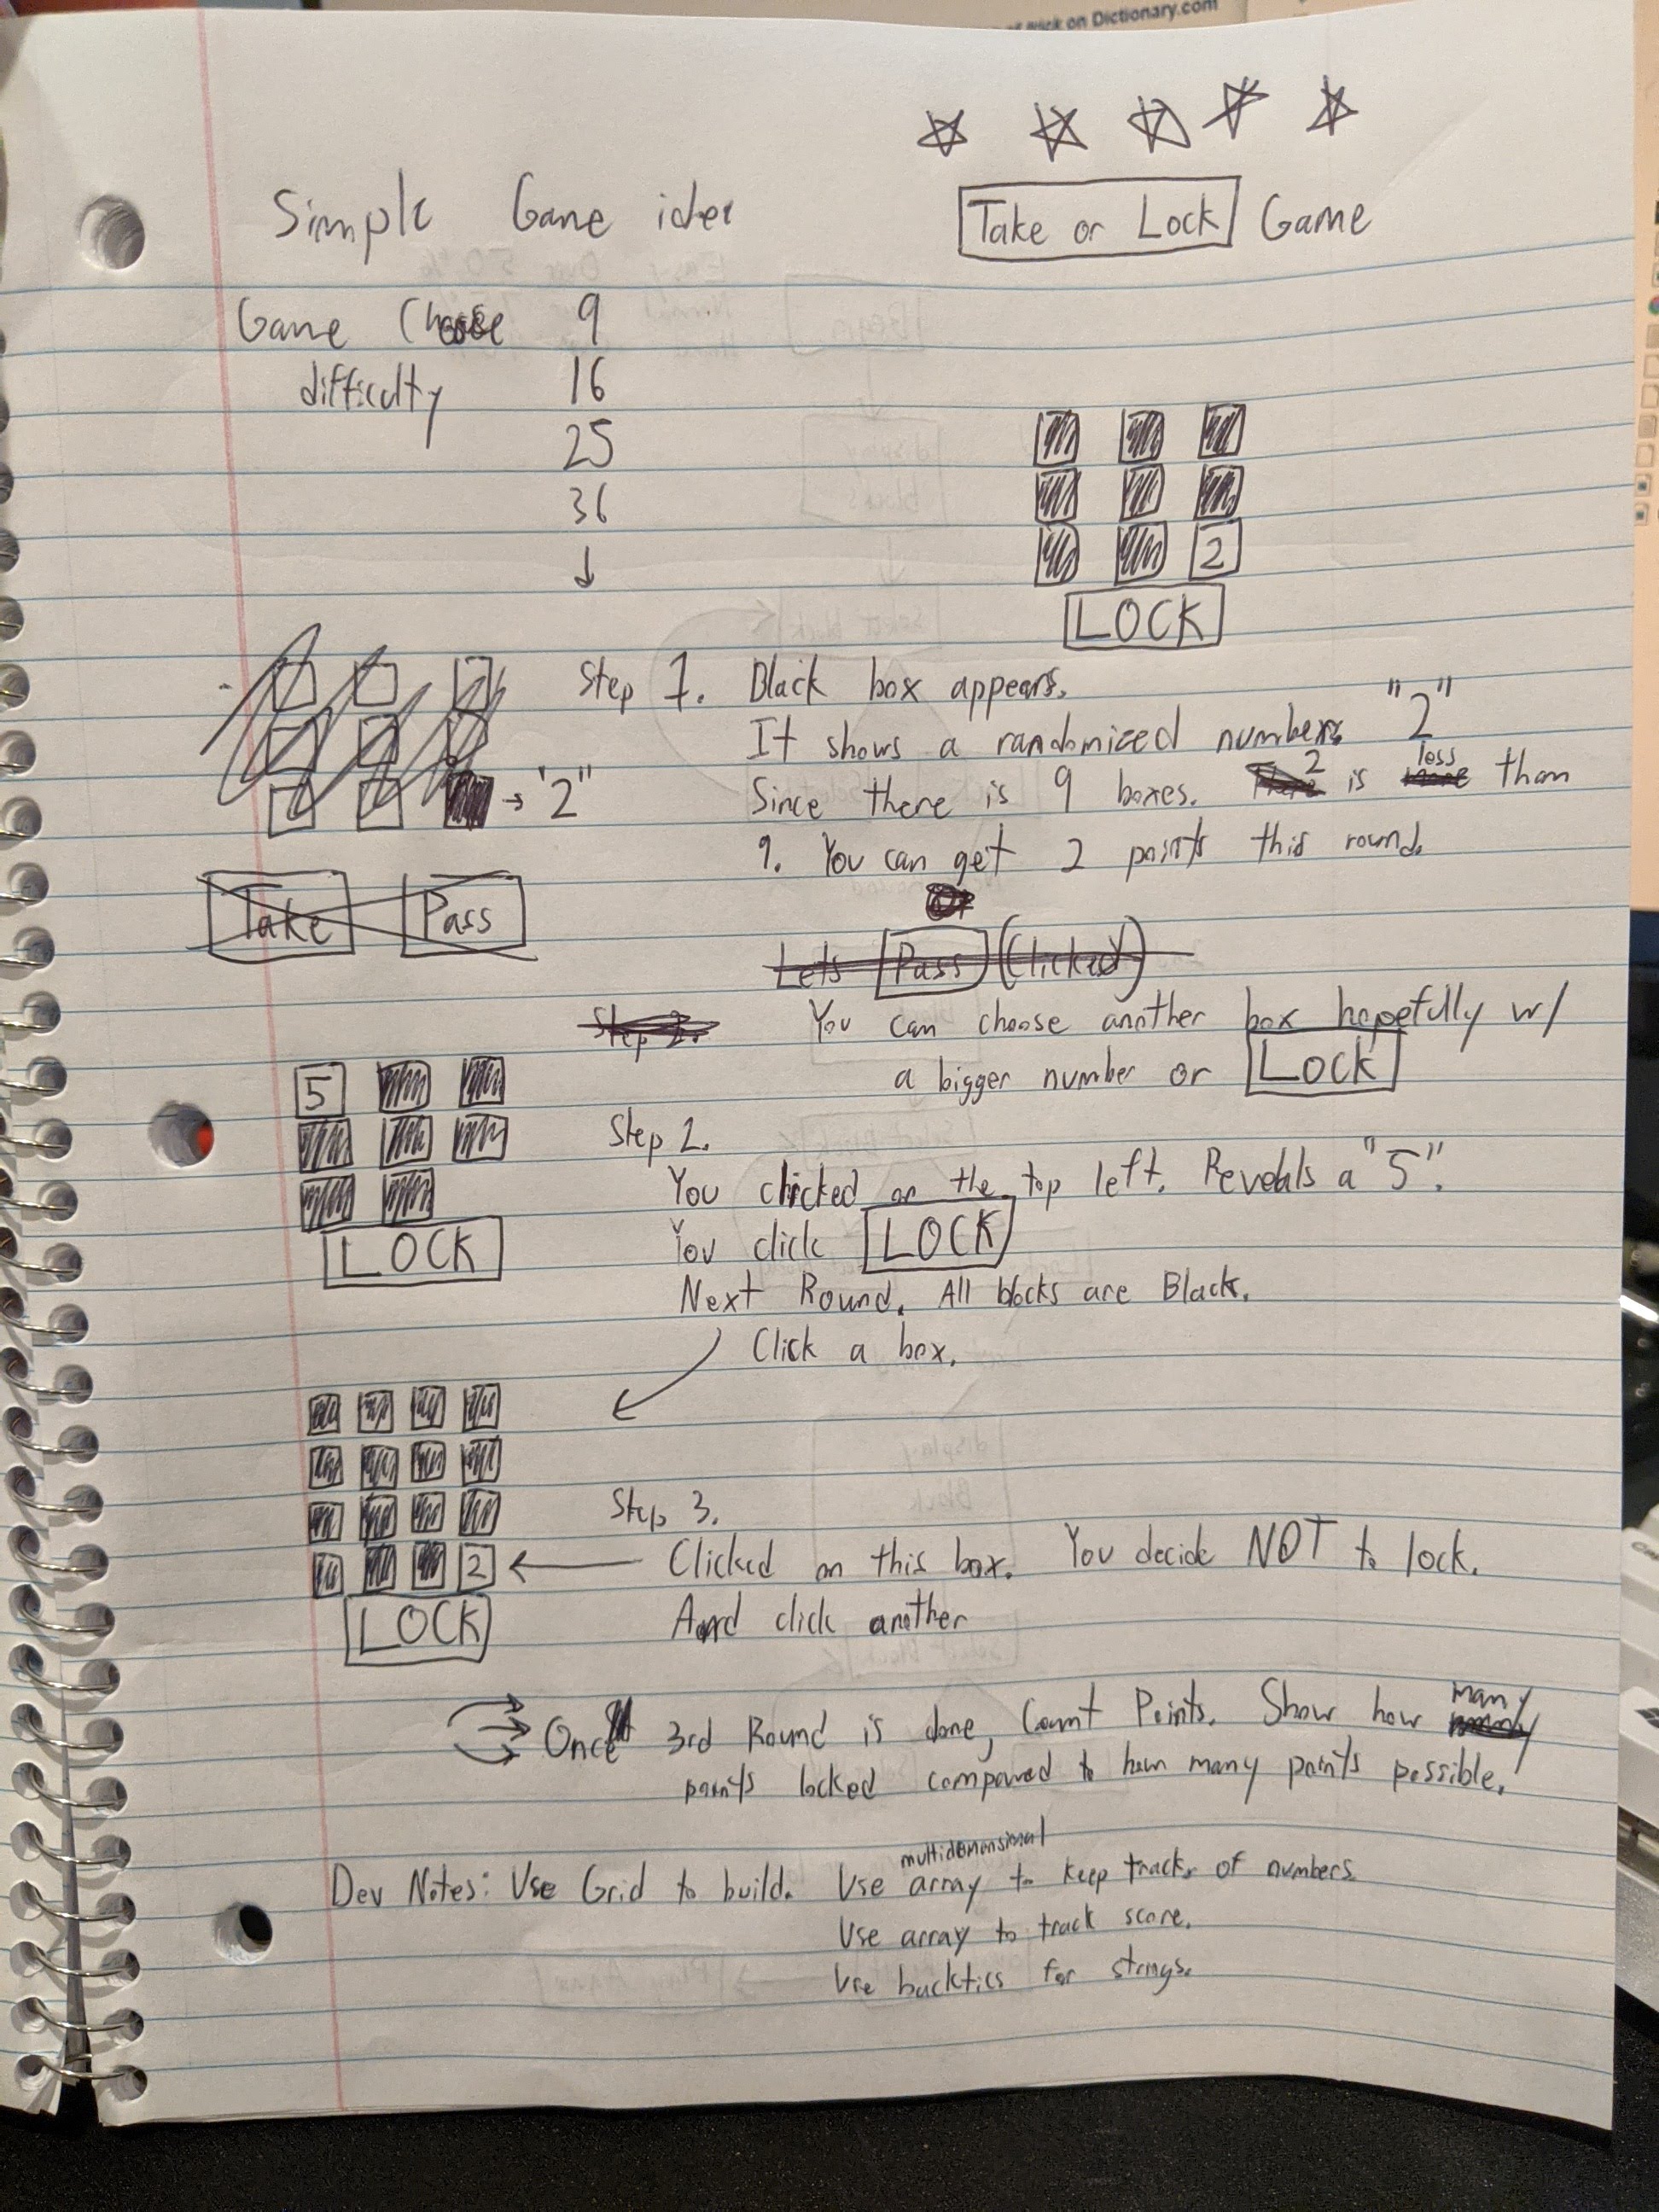 on Dictionary.com
Simple Game idea
Take or Lock Game
Game Choose 9
difficulty 16
25
36
2
LOCK
Step 1. Black box appears.
It shows a randomized number "2"
Since there is 9 boxes. 2 is less than
9. You can get 2 points this round.
→ "2"
Take Pass
Or
Lets Pass (Clicked)
Step 2.
You can choose another box hopefully w/
a bigger number or LOCK
5
LOCK
Step 2.
You clicked on the top left. Reveals a "5".
You click LOCK
Next Round. All blocks are Black.
Click a box.
2
LOCK
Step 3.
Clicked on this box. You decide NOT to lock.
And click another
Once 3rd Round is done, Count Points. Show how many
points locked compared to how many points possible.
Dev Notes: Use Grid to build. Use multidemonsimal array to keep track of numbers
Use array to track score.
Use backtics for strings.